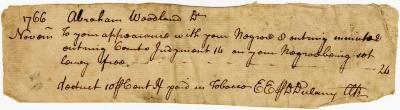 1766 Abraham Woodland Dr
Novem To your appearance with your Negroes & entring minutes
entring Court Judgment 14 on your Negroes being set
Levey free 24
deduct 10 ⅌ Cent If paid in Tobacco E E ⅌ D Dulany